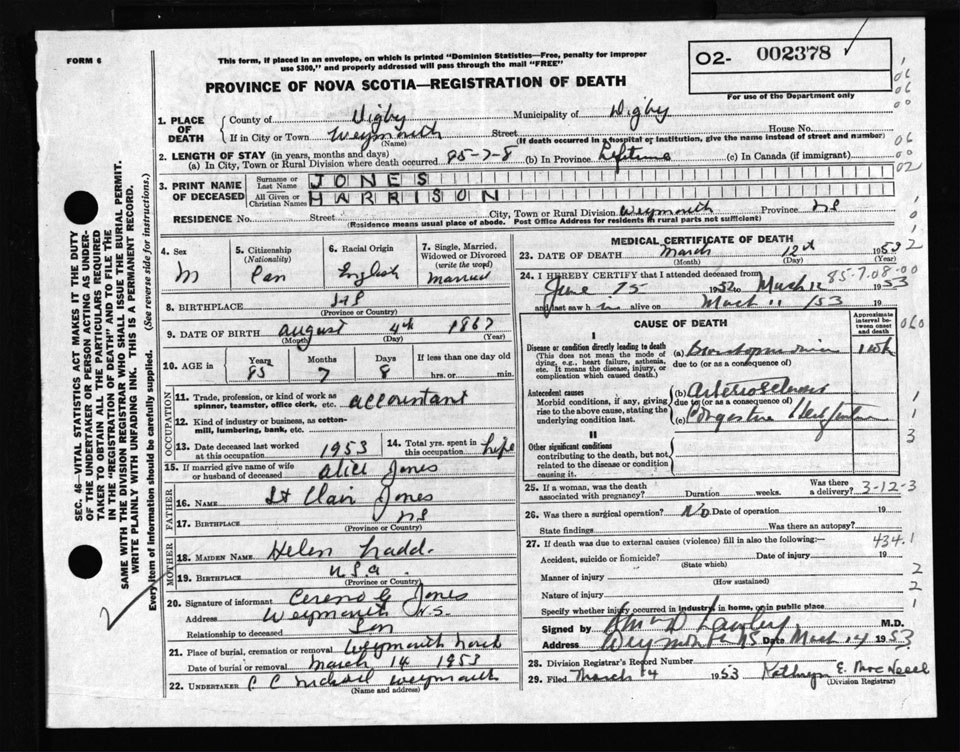 FORM 6
This form, if placed in an envelope, on which is printed "Dominion Statistics—Free, penalty for improper
use $300," and properly addressed will pass through the mail "FREE"
PROVINCE OF NOVA SCOTIA—REGISTRATION OF DEATH
02- 002378
For use of the Department only
SEC. 46—VITAL STATISTICS ACT MAKES IT THE DUTY
OF THE UNDERTAKER OR PERSON ACTING AS UNDER-
TAKER TO OBTAIN ALL THE PARTICULARS REQUIRED
IN THE "REGISTRATION OF DEATH" AND TO FILE THE
SAME WITH THE DIVISION REGISTRAR WHO SHALL ISSUE THE BURIAL PERMIT.
WRITE PLAINLY WITH UNFADING INK. THIS IS A PERMANENT RECORD.
Every item of information should be carefully supplied. (See reverse side for instructions.)
1. PLACE OF DEATH
County of Digby Municipality of Digby
If in City or Town Weymouth Street House No.
(Name) (If death occurred in a hospital or institution, give the name instead of street and number)
2. LENGTH OF STAY (in years, months and days)
(a) In City, Town or Rural Division where death occurred 85-7-8 (b) In Province Lifetime (c) In Canada (if immigrant)
3. PRINT NAME OF DECEASED
Surname or Last Name JONES
All Given or Christian Names HARRISON
RESIDENCE No. Street City, Town or Rural Division Weymouth Province NS
(Residence means usual place of abode. Post Office Address for residents in rural parts not sufficient)
4. Sex M
5. Citizenship (Nationality) Can
6. Racial Origin English
7. Single, Married, Widowed or Divorced (write the word) Married
8. BIRTHPLACE NS
(Province or Country)
9. DATE OF BIRTH August 4th 1867
(Month) (Day) (Year)
10. AGE in Years 85 Months 7 Days 8 If less than one day old
hrs. or min.
OCCUPATION
11. Trade, profession, or kind of work as
spinner, teamster, office clerk, etc. accountant
12. Kind of industry or business, as cotton-
mill, lumbering, bank, etc.
13. Date deceased last worked at this occupation 1953
14. Total yrs. spent in this occupation life
15. If married give name of wife
or husband of deceased Alice Jones
FATHER
16. NAME St Clair Jones
17. BIRTHPLACE NS
(Province or Country)
MOTHER
18. MAIDEN NAME Helen Ladd
19. BIRTHPLACE U.S.A.
(Province or Country)
20. Signature of informant Cereno G Jones
Address Weymouth N.S.
Relationship to deceased Son
21. Place of burial, cremation or removal Weymouth North
Date of burial or removal March 14 1953
22. UNDERTAKER C C Nichols Weymouth
(Name and address)
MEDICAL CERTIFICATE OF DEATH
23. DATE OF DEATH March 12th 1953
(Month) (Day) (Year)
24. I HEREBY CERTIFY that I attended deceased from
85-7-08-00
June 1952 to March 12 1953
and last saw h im alive on March 11 /53 19
CAUSE OF DEATH
Approximate interval between onset and death
I
Disease or condition directly leading to death
(This does not mean the mode of
dying, e.g., heart failure, asthenia,
etc. It means the disease, injury, or
complication which caused death.)
(a) Bronchopneumonia 1 wk
due to (or as a consequence of)
Antecedent causes
Morbid conditions, if any, giving
rise to the above cause, stating the
underlying condition last.
(b) Arteriosclerosis
due to (or as a consequence of)
(c) Congestive Heart failure
II
Other significant conditions
contributing to the death, but not
related to the disease or condition
causing it.
25. If a woman, was the death
associated with pregnancy? Duration weeks. Was there a delivery? 3-12-3
26. Was there a surgical operation? No Date of operation 19
State findings Was there an autopsy?
27. If death was due to external causes (violence) fill in also the following:— 434.1
Accident, suicide or homicide? Date of injury 19
(State which)
Manner of injury
(How sustained)
Nature of injury
Specify whether injury occurred in industry, in home, or in public place
Signed by M.D.
Address Weymouth NS Date March 14 1953
28. Division Registrar's Record Number
29. Filed March 14 1953 Kathryn E. MacNeill
(Division Registrar)